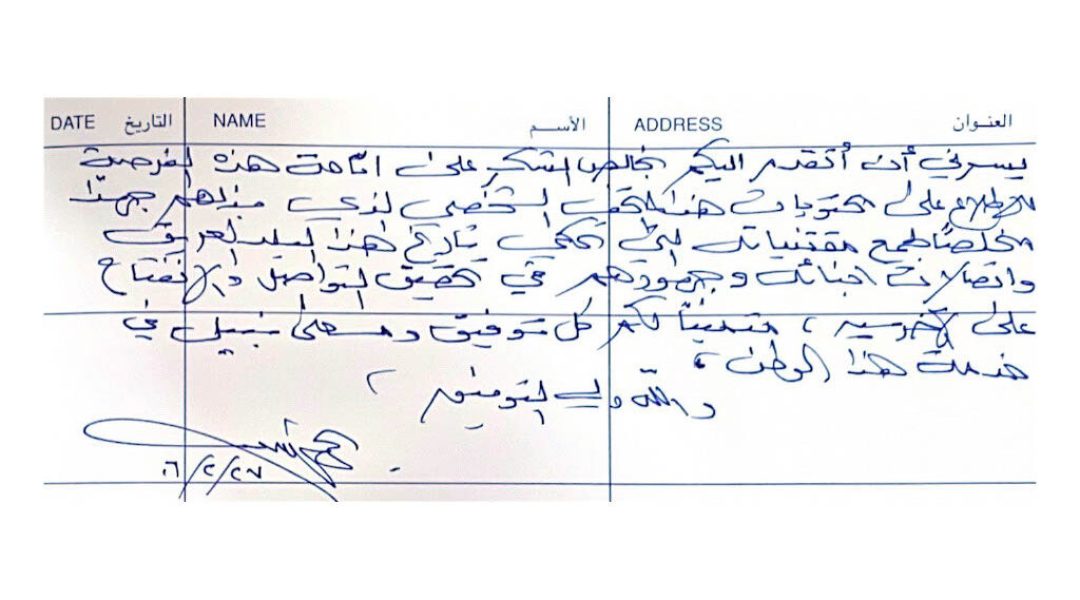 DATE التاريخ NAME الأســم ADDRESS العنــوان
يسرني أن أتقدم اليكم بخالص الشكر على اتاحة هذه الفرصة
للإطلاع على محتويات هذا المتحف الشخصي الذي بذلهم جهدًا
مخلصًا لجمع مقتنياته التي تحكي تاريخ هذا البلد العريق
واتصالات ابنائه وجهودهم في تحقيق التواصل والإنفتاح
على الآخرين، متمنياً لكم كل توفيق ومسعى نبيل في
خدمة هذا الوطن،
والله ولي التوفيق،